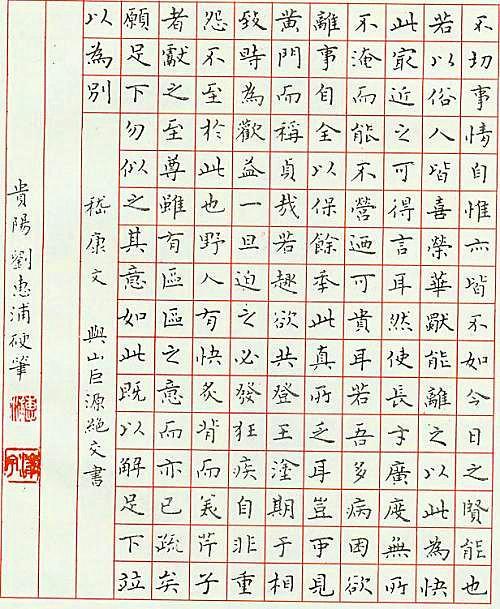 不切事情自惟亦皆不如今日之賢能也
若以俗人皆喜榮華獨能離之以此為快
此最近之可得言耳然使長才廣度無所
不淹而能不營迺可貴耳若吾多病困欲
離事自全以保餘年此真所乏耳豈可見
黃門而稱貞哉若趣欲共登王塗期于相
致時為歡益一旦迫之必發狂疾自非重
怨不至於此也野人有快炙背而美芹子
者獻之至尊雖有區區之意而亦已疏矣
願足下勿似之其意如此既以解足下竝
以為別 嵇康文 與山巨源絕交書
貴陽劉惠浦硬筆